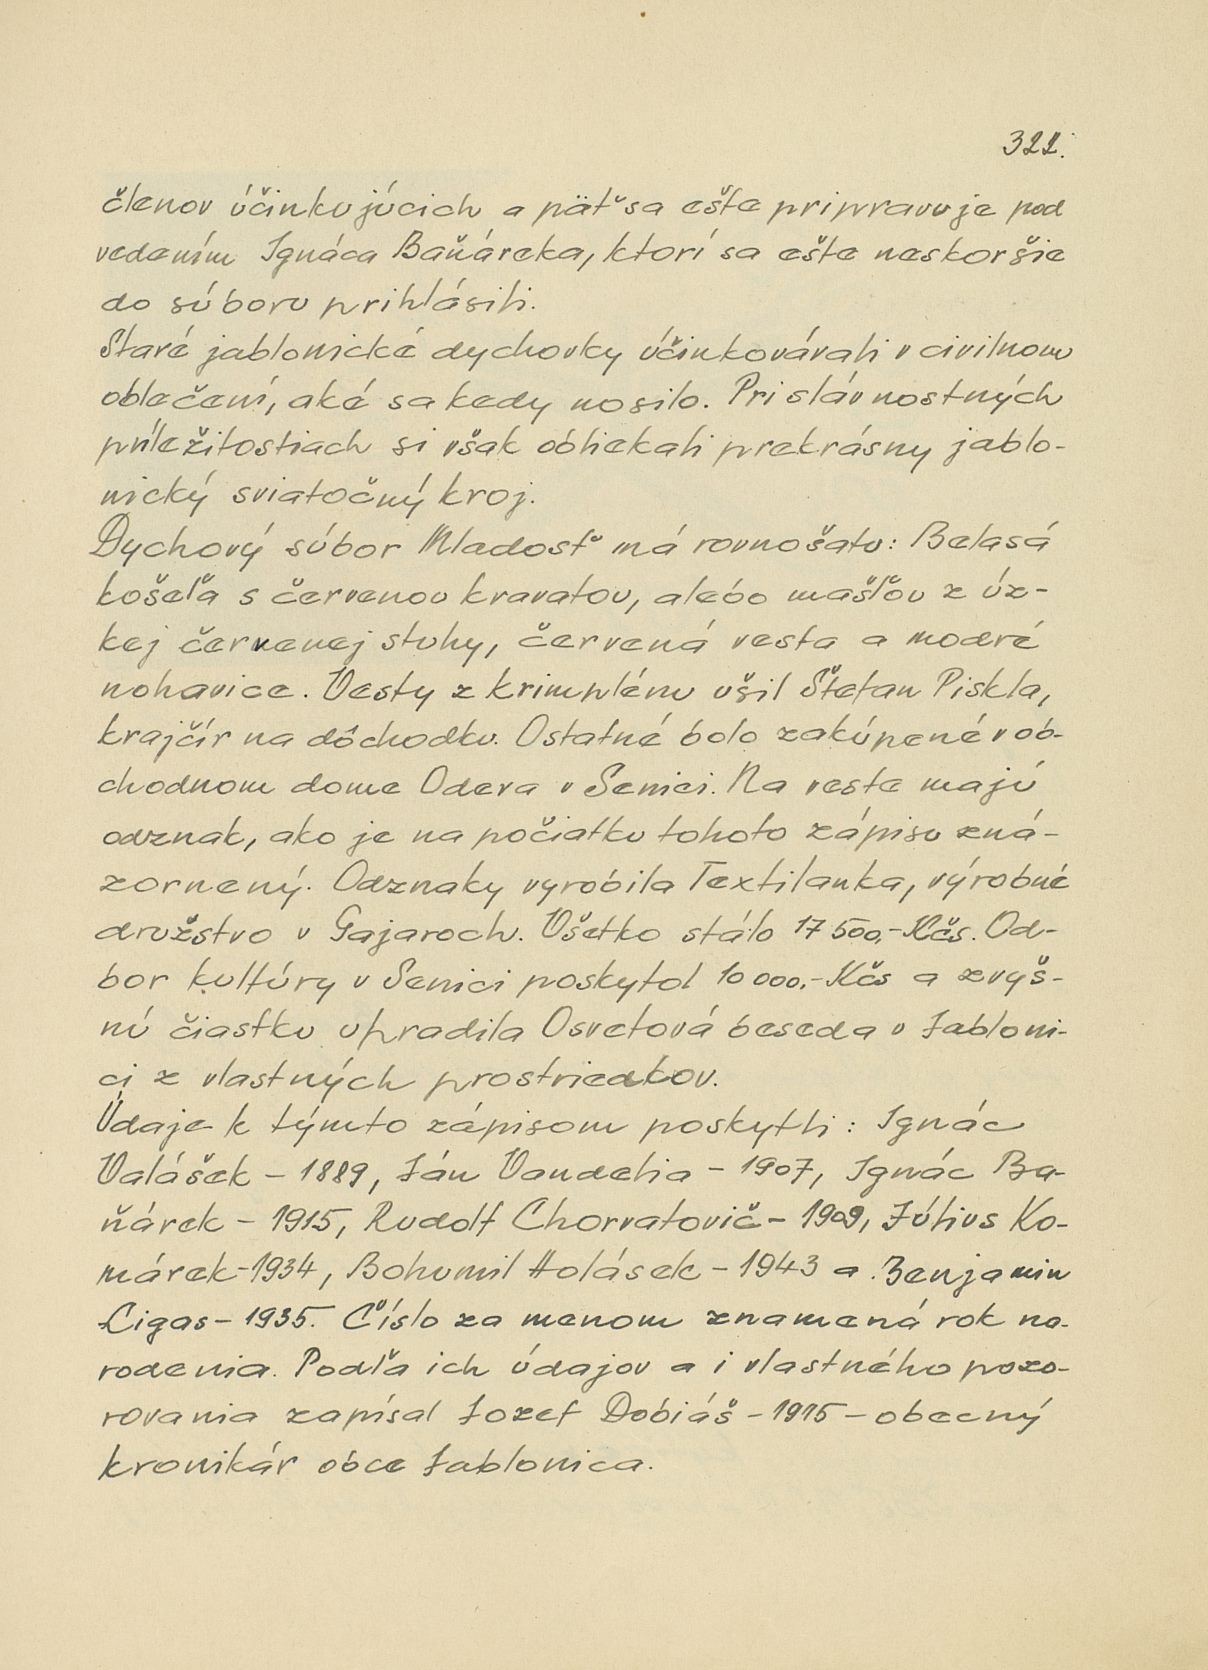 322.
členov účinkujúcich a päť sa ešte pripravuje pod
vedením Ignáca Baňáreka, ktorí sa ešte neskoršie
do súboru prihlásili.
Staré jablonické dychovky účinkovávali v civilnom
oblečení, aké sa kedy nosilo. Pri slávnostných
príležitostiach si však obliekali prekrásny jablo-
nický sviatočný kroj.
Dychový súbor Mladosť má rovnošatu: Belasá
košeľa s červenou kravatou, alebo mašľou z úz-
kej červenej stuhy, červená vesta a modré
nohavice. Vesty z krimplénu ušil Štefan Piskla,
krajčír na dôchodku. Ostatné bolo zakúpené v ob-
chodnom dome Odeva v Senici. Na veste majú
odznak, ako je na počiatku tohoto zápisu zná-
zornený. Odznaky vyrobila Textilanka, výrobné
družstvo v Gajaroch. Všetko stálo 17 500,-Kčs. Od-
bor kultúry v Senici poskytol 10 000.-Kčs a zvyš-
nú čiastku uhradila Osvetová beseda v Jabloni-
ci z vlastných prostriedkov.
Údaje k týmto zápisom poskytli: Ignác
Valášek - 1889, Ján Vandelia - 1907, Ignác Ba-
ňárek - 1915, Rudolf Chorvatovič - 1909, Július Ko-
márek-1934, Bohumil Holásek - 1943 a Benjamin
Cigas - 1935. Číslo za menom znamená rok na-
rodenia. Podľa ich údajov a i vlastného pozo-
rovania zapísal Jozef Dobiáš - 1915 - obecný
kronikár obce Jablonica.